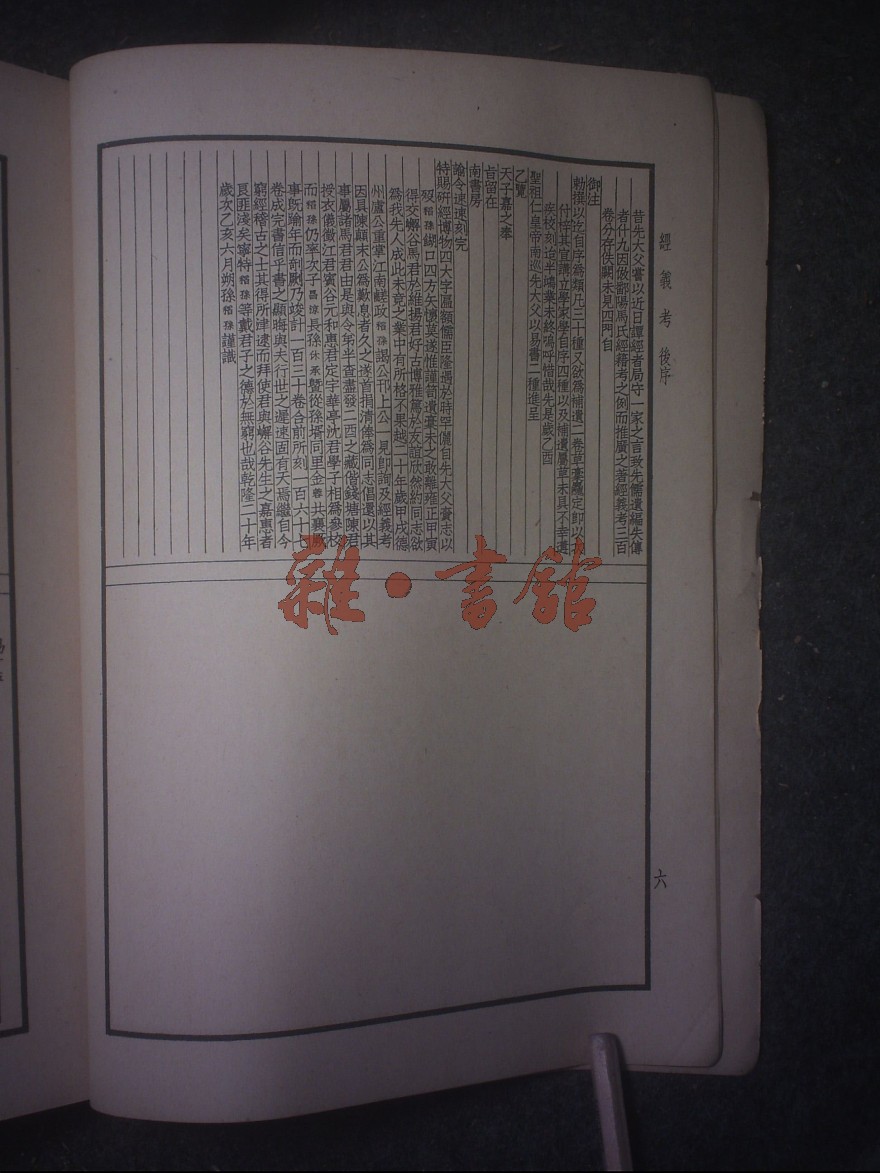 經義考 後序
昔先大父嘗以近日譚經者局守一家之言致先儒遺編失傳
者什九因倣鄱陽馬氏經籍考之例而推廣之著經義考三百
卷分存佚闕未見四門自
御注
勅撰以迄自序為類凡三十種又欲為補遺二卷草藁麤定即以
什梓其宣講立學家學自序四種以及補遺屬草未具不幸遘
疾校刻迨半鴻業未終嗚呼惜哉先是歲乙酉
聖祖仁皇帝南巡先大父以易書二種進呈
乙覽
天子嘉之奉
旨留在
南書房
諭令速速刻完
特賜研經博物四大字匾額儒臣隆遇於時罕儷自先大父賫志以
歿稻孫餬口四方矢懷莫遂惟謹笥遺藁未之敢離雍正甲寅
得交嶰谷馬君於維揚君好古博雅篤於友誼欣然約同志欲
為我先人成此未竟之業中有所格不果越二十年歲甲戌德
州盧公重掌江南鹺政稻孫謁公邗上公一見即詢及經義考
因具陳顛末公為歎息者久之遂首捐清俸為同志倡還以其
事屬諸馬君君由是與令弟半查盡發二酉之藏偕錢塘陳君
授衣儀徵江君賓谷元和惠君定宇華亭沈君學子相為參校
而稻孫仍率次子昌涼長孫休承暨從孫壻同里金蓉共襄厥
事既踰年而剞劂乃竣計一百三十卷合前所刻一百六十七
卷成完書信乎書之顯晦與夫行世之遲速固有天焉繼自今
窮經稽古之士其得所津逮而拜使君與嶰谷先生之嘉惠者
良匪淺矣寧特稻孫等戴君子之德於無窮也哉乾隆二十年
歲次乙亥六月朔孫稻孫謹識
六
雜·書館